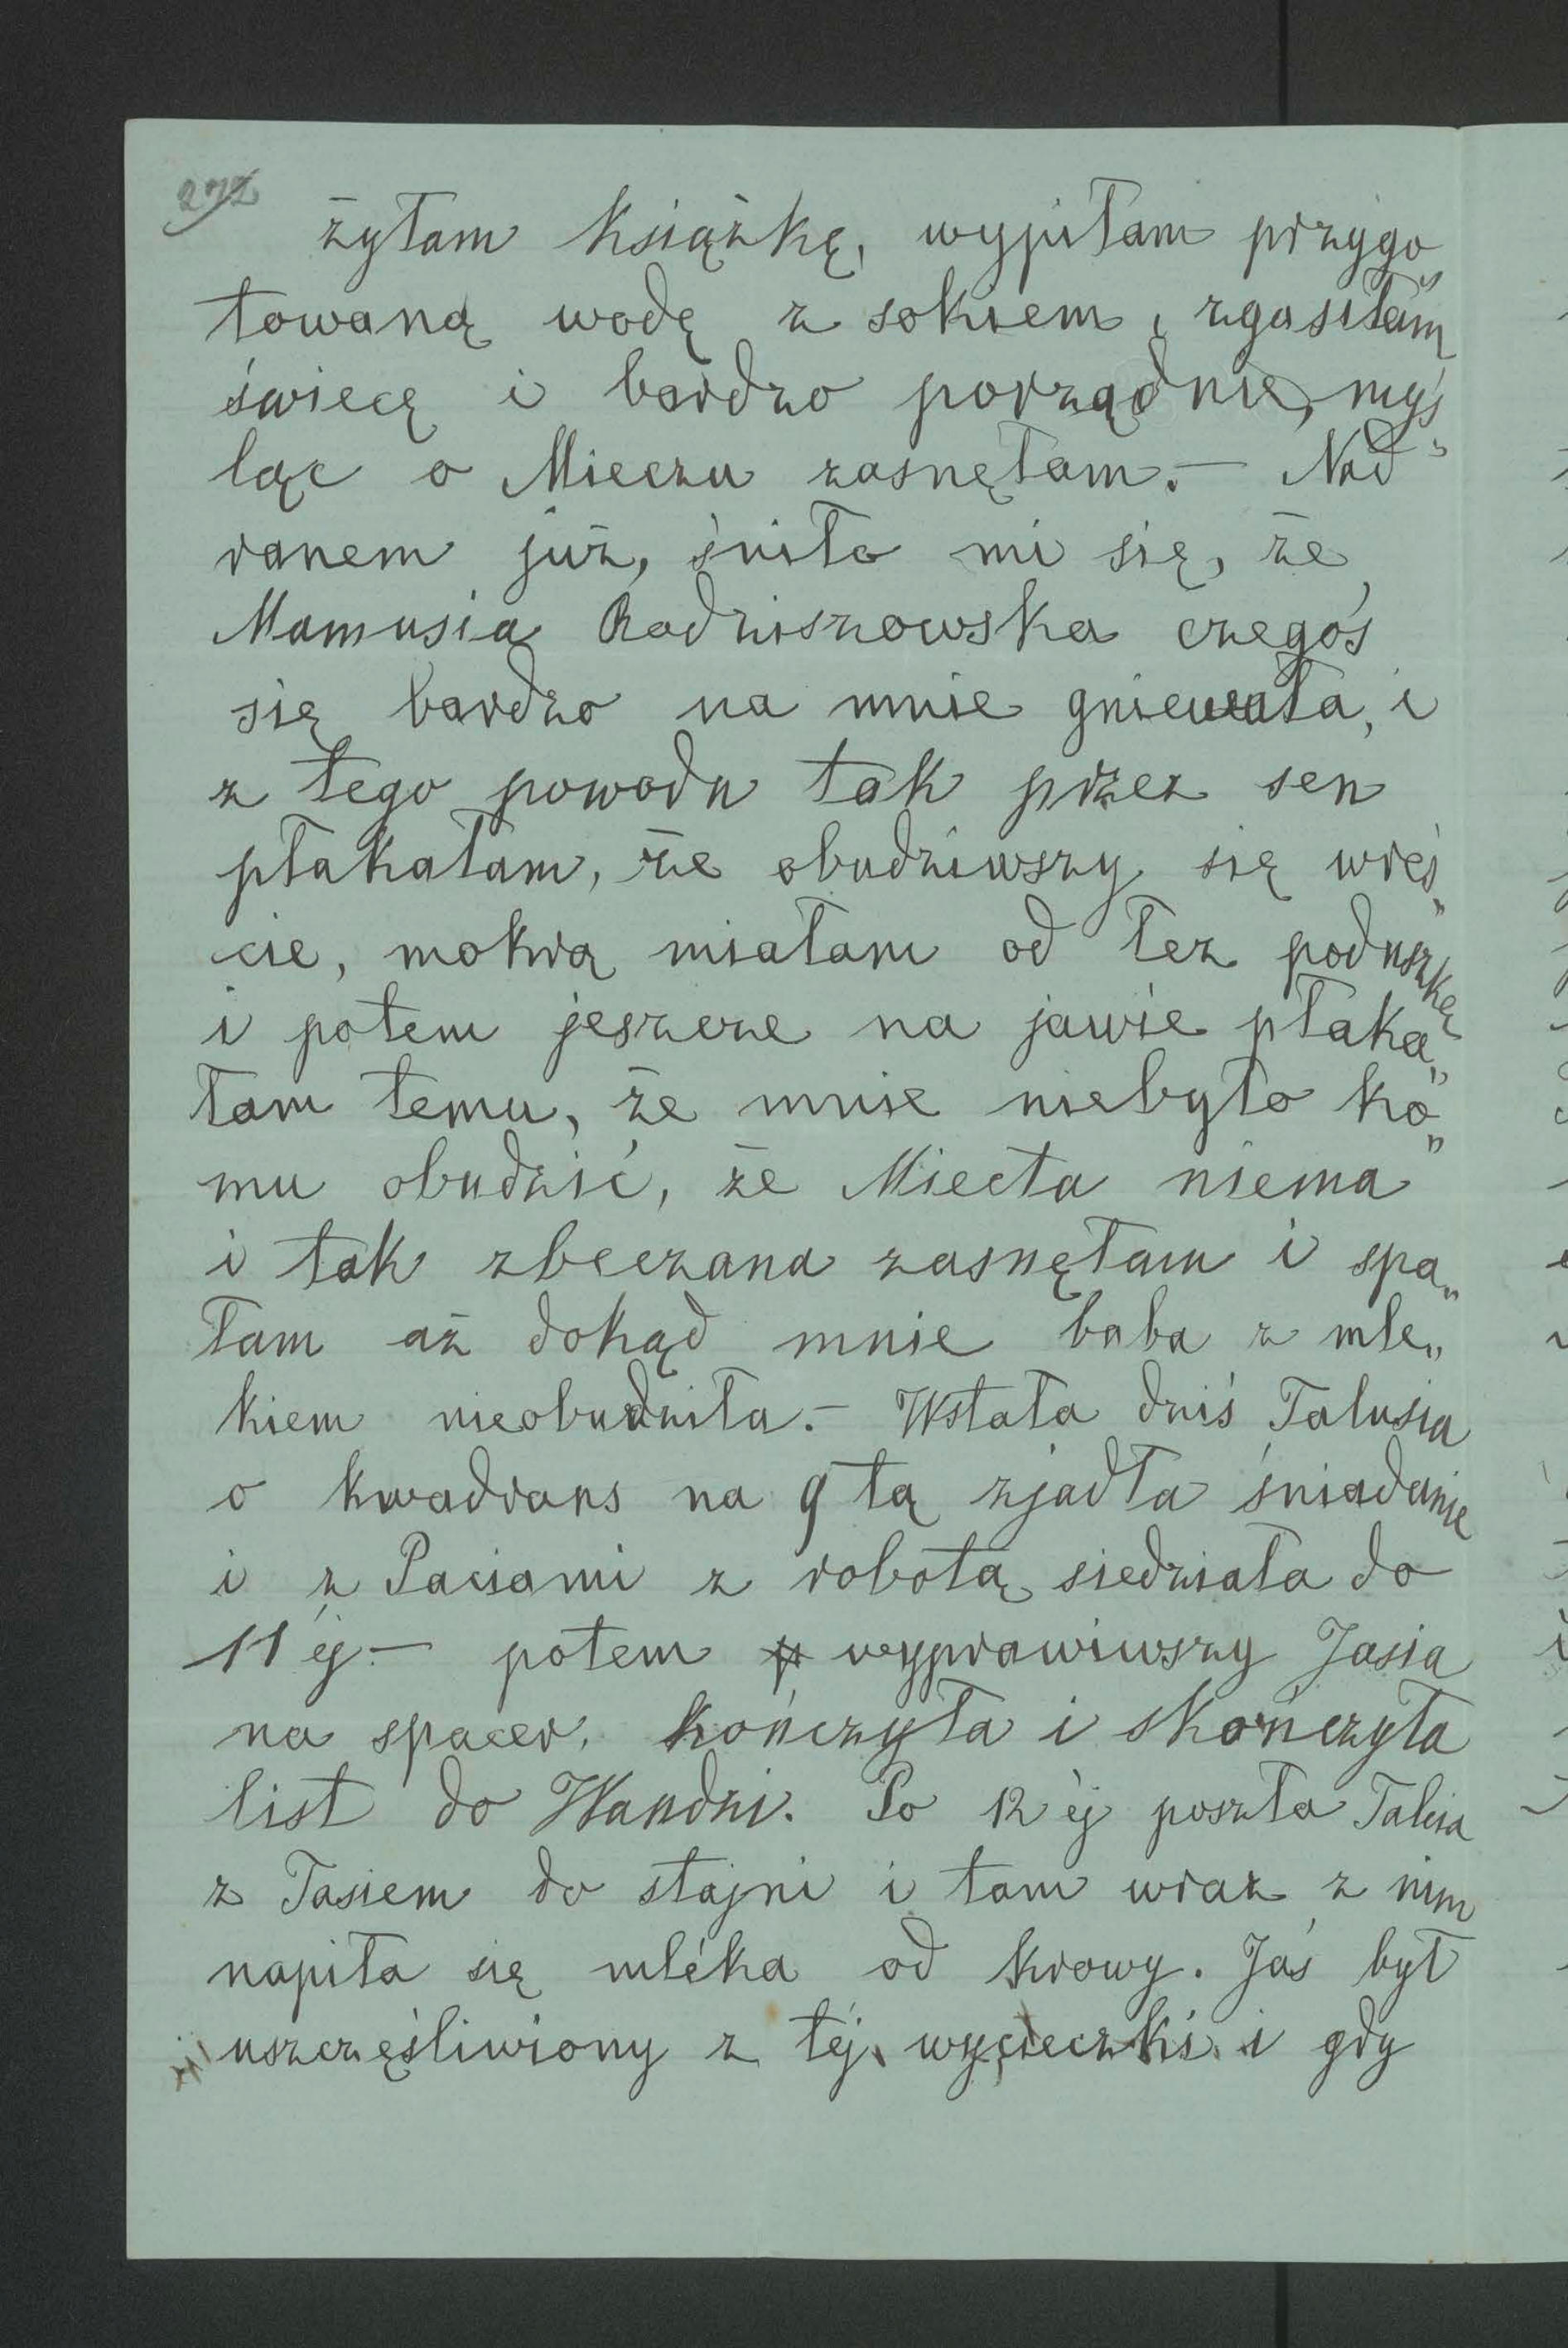 272
żyłam książkę, wypiłam przygo„
towaną wodę z sokiem, zgasiłam
świecę i bardzo porządnie, myś„
ląc o Mieczu zasnęłam.– Nad
ranem już, śniło mi się, że
Mamusia Radziszowska czegoś
się bardzo na mnie gniewała, i
z tego powodu tak przez sen
płakałam, że obudziwszy się wreś„
cie, mokrą miałam od łez poduszkę
i potem jeszcze na jawie płaka„
łam temu, że mnie niebyło ko„
mu obudzić, że Miecia niema
i tak zbeczana zasnęłam i spa„
łam aż dokąd mnie baba z mle„
kiem nieobudziła.– Wstała dziś Talusia
o kwadrans na 9tą zjadła śniadanie
i z Paciami z robotą siedziała do
11éj – potem wyprawiwszy Jasia
na spacer, kończyła i skończyła
list do Wandzi. Po 12éj poszła Talcia
z Jasiem do stajni i tam wraz z nim
napiła się mléka od krowy. Jaś był
uszczęśliwiony z téj wycieczki i gdy